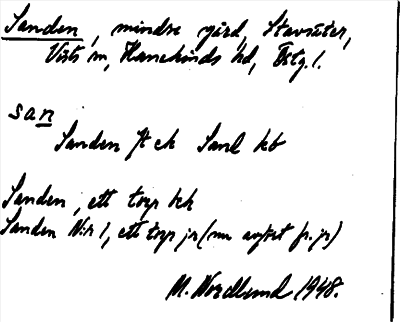 Sanden, mindre gård, Stavsäter,
Vists sn, Hanekinds hd, Östg. l.
san
Sanden Jt ek Sand kb
Sanden, ett torp hk
Sanden N:r 1, ett torp jr (nu avsöt fr. jr)
M. Nordlund 1948.